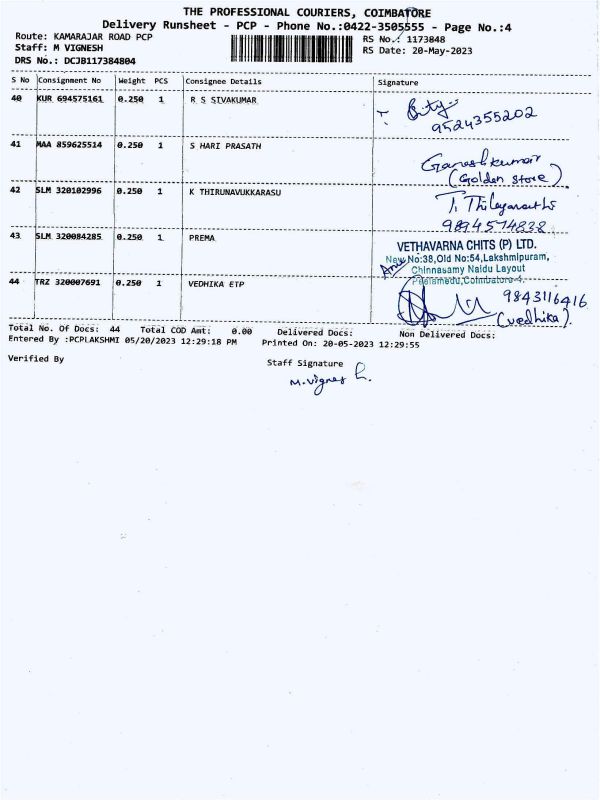 THE PROFESSIONAL COURIERS, COIMBATORE
Delivery Runsheet - PCP - Phone No.:0422-3505555 - Page No.:4
Route: KAMARAJAR ROAD PCP
RS No.: 1173848
Staff: M VIGNESH
RS Date: 20-May-2023
DRS No.: DCJB117384804
S No Consignment No Weight PCS Consignee Details Signature
40 KUR 694575161 0.250 1 R S SIVAKUMAR
9524355202
41 MAA 859625514 0.250 1 S HARI PRASATH
Ganeshkumar
(Golden store)
42 SLM 320102996 0.250 1 K THIRUNAVUKKARASU
43 SLM 320084285 0.250 1 PREMA
VETHAVARNA CHITS (P) LTD.
New No:38,Old No:54,Lakshmipuram,
Chinnasamy Naidu Layout
Peelamedu,Coimbatore-4.
44 TRZ 320007691 0.250 1 VEDHIKA ETP
9843116416
(vedhika).
Total No. Of Docs: 44 Total COD Amt: 0.00 Delivered Docs: Non Delivered Docs:
Entered By :PCPLAKSHMI 05/20/2023 12:29:18 PM Printed On: 20-05-2023 12:29:55
Verified By
Staff Signature
M.Vignesh